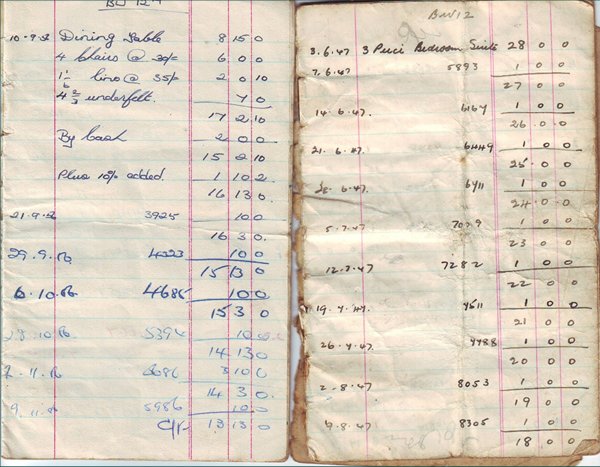 BW 12
10-9-56 Dining Table 8 15 0
4 Chairs @ 30/- 6 0 0
lino @ 35/- 2 0 10
4 2/3 underfelt. 7 0
17 2 10
By Cash 2 0 0
15 2 10
Plus 10% added 1 10 2
16 13 0
21.9.56 3925 10 0
16 3 0.
29.9.56 4323 10 0
15 13 0
6.10.56 4685 10 0
15 3 0
5394 10 0
14 13 0
10 0
14 3 0.
9.11.56 5986 10 0
C/F 13 13 0
BW 12
3.6.47 3 Piece Bedroom Suite 28 0 0
7.6.47 5893 1 0 0
27 0 0
14.6.47. 6167 1 0 0
26.0.0
21.6.47. 6449 1 0 0
25.0 0
28.6.47. 6711 1 0 0
24.0.0
5.7.47 7029 1 0 0
23 0 0
12.7.47 7282 1 0 0
22 0 0
19.7.47. 7511 1 0 0
21 0 0
26.7.47. 7788 1 0 0
20 0 0
2.8.47 8053 1 0 0
19 0 0
9.8.47 8305 1 0 0
18 0 0